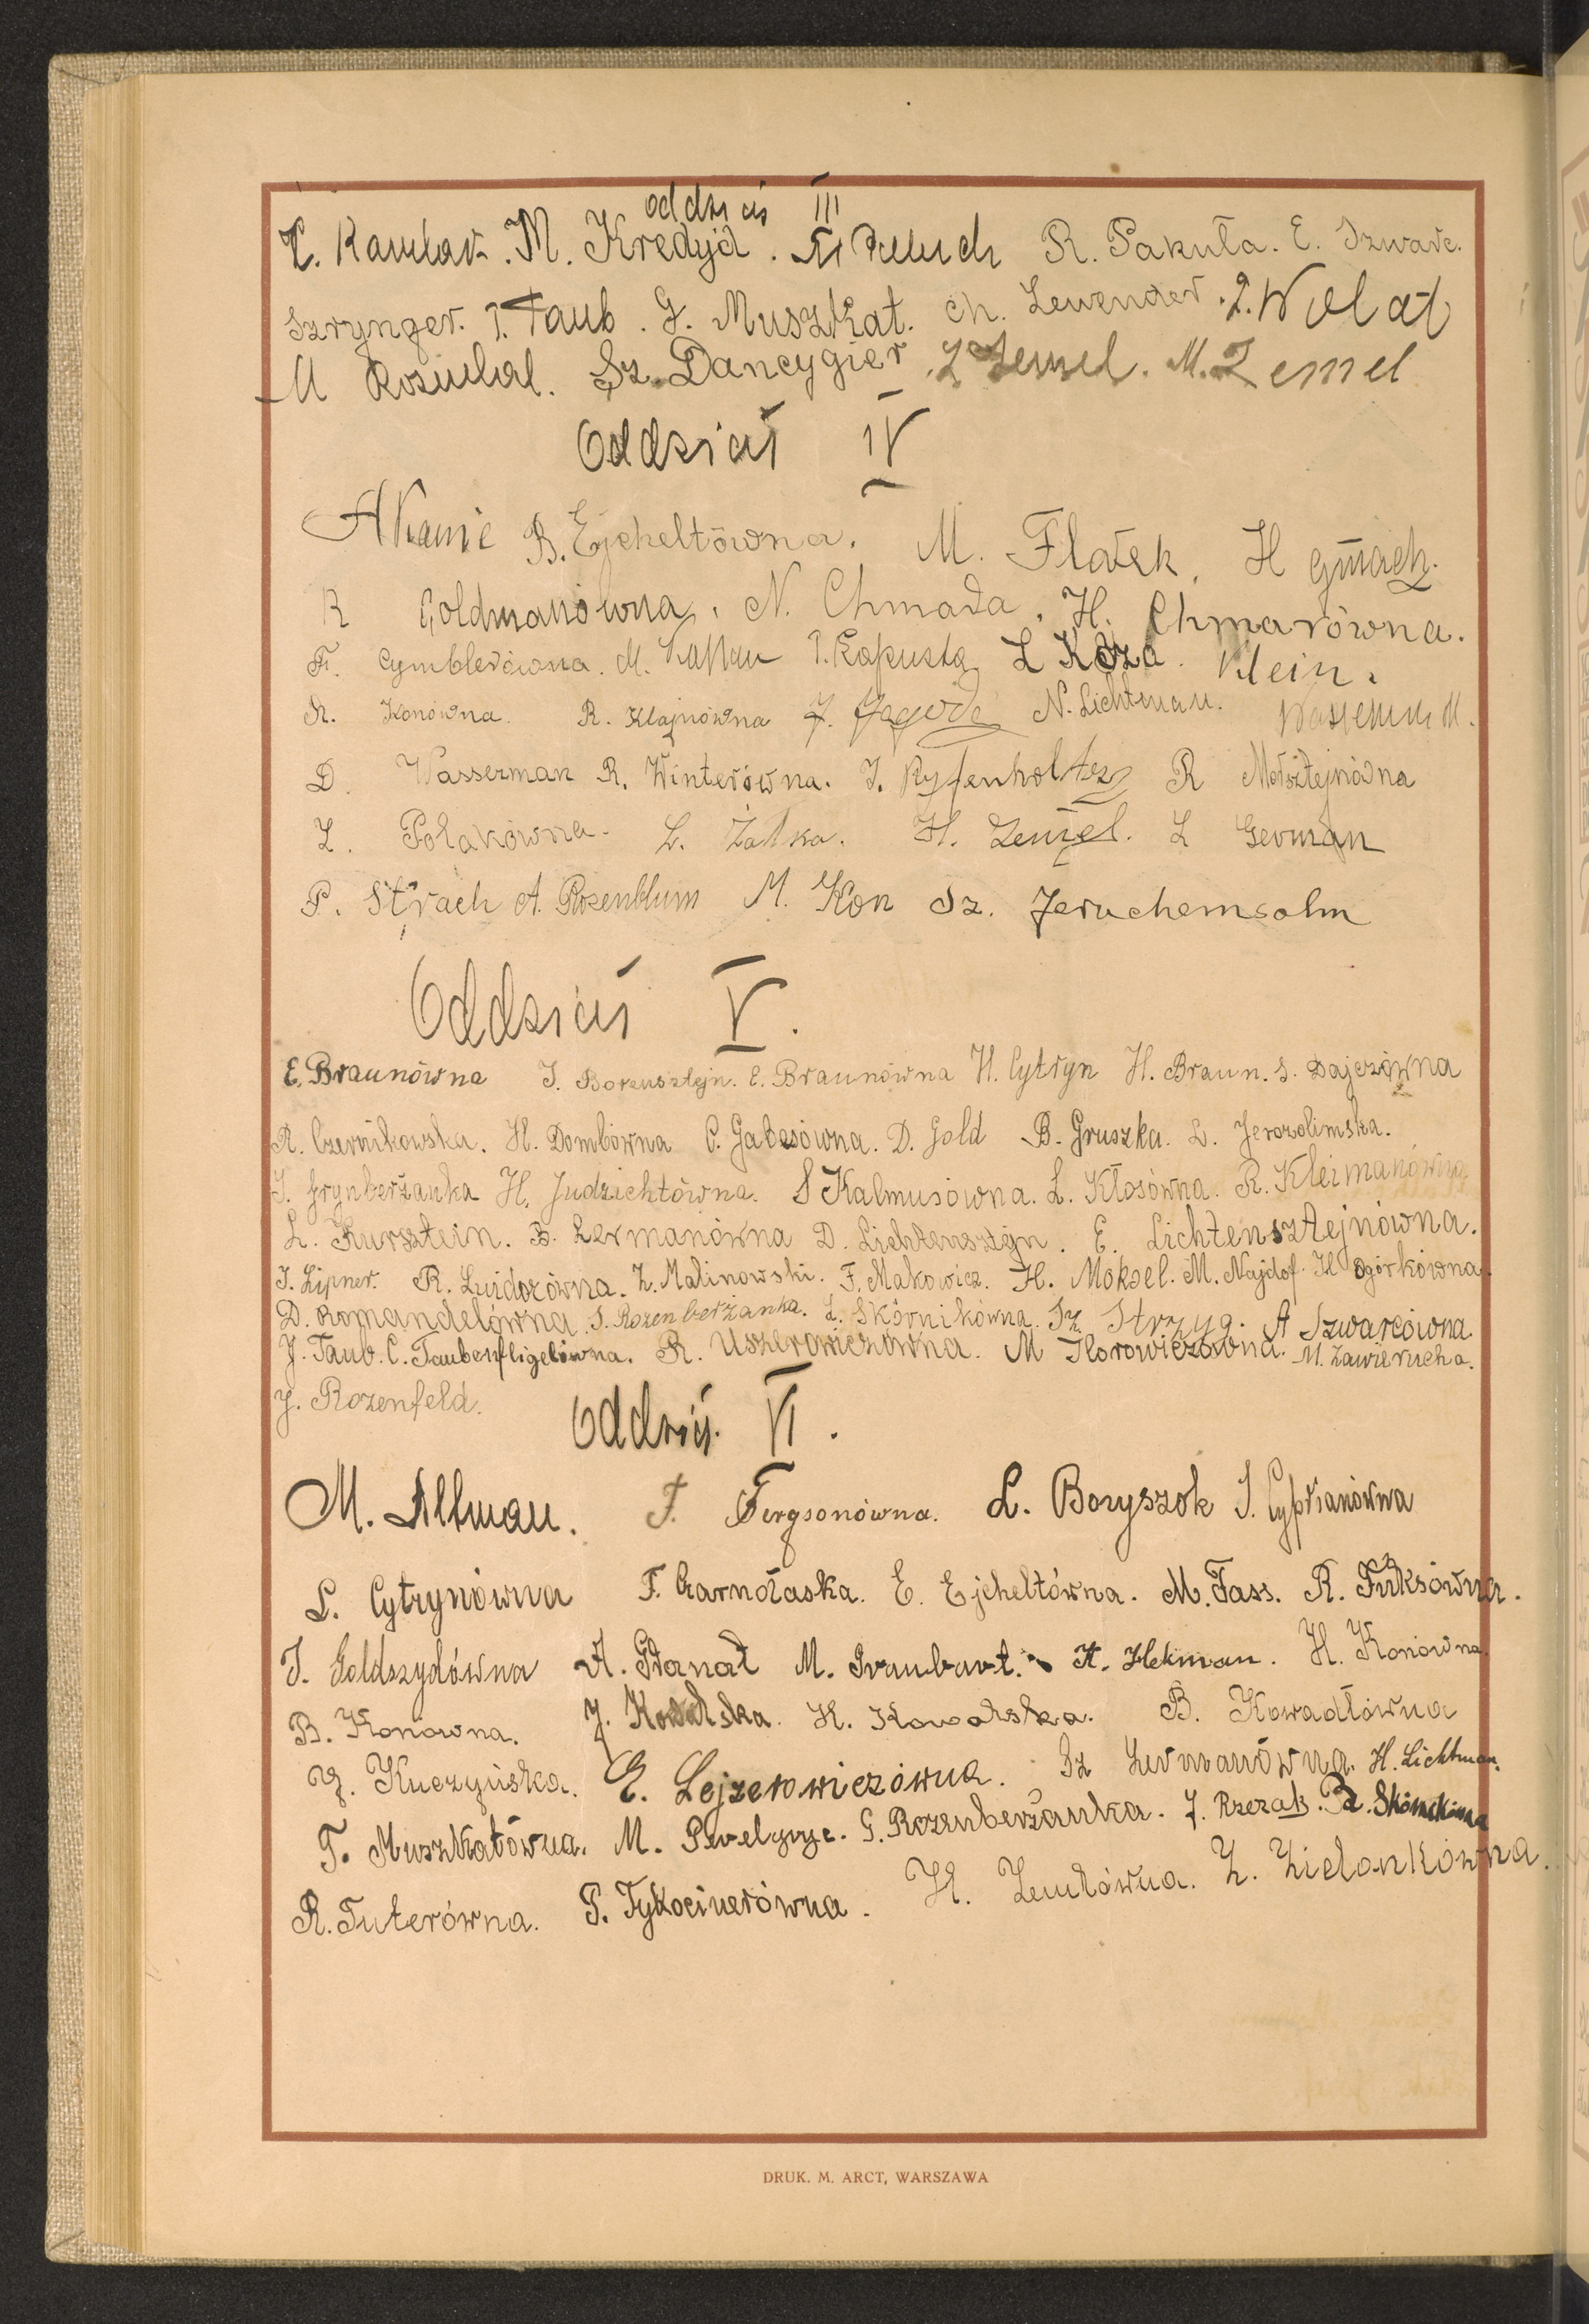 Oddział III
M. Kredyd. R. Pakuła. E. Szwarc.
Szrynger. I. Taub. G. Muszkat. Ch. Lewender.
M Sz. Dancygier. Zemel. M. Zemel
Oddział IV
B. Ejcheltówna. M. Flatek. H Gmach.
R Goldmanówna. N. Chmara. H. Chmarówna.
F. Cymblerówna. M. I. Kapusta L Koza. Klein.
R. Konówna. R. Klajnówna J. Jagoda N. Lichtman. M.
D. Wasserman R. Winterówna. I. Ryfenholtz R Morsztejnówna
Z. Polakówna. L. Żatka. H. Zemel. L German
P. Strach A. Rozenblum M. Kon Sz. Jeruchemsolm
Oddział V.
E. Braunówna J. Borensztejn. E. Braunówna H. Cytryn H. Braun. S. Dajczówna
R. Czernikowska. H. Dombówna C. Gabesówna. D. Gold B. Gruszka. L. Jerozolimska.
S. Grynberżanka H. Judzichtówna. S Kalmusówna. L. Kłosówna. R. Kleimanówna
L. Kursztein. B. Lermanówna D. Lichtensztejn. E. Lichtensztejnówna.
J. Lipner. R. Luidorówna. Z. Malinowski. F. Makowicz. H. Moksel. M. Najdof. H Ogórkówna.
D. Romandelówna. S. Rozenberżanka. L. Skórnikówna. Sz Strzyg. A Szwarcówna
J. Taub. C. Taubenfligelówna. R. Uszerowiczówna. M Horowiczówna. M. Zawierucha.
J. Rozenfeld.
Oddział VI.
M. Altman. F. Fergsonówna. L. Boryszok S. Cyprianówna
L. Cytrynówna F. Czarnołaska. E. Ejcheltówna. M. Fass. R. Fuksówna.
I. Goldszydówna A. Granat M. Graubart. H. Hekman. H. Konówna
B. Konówna. J. Kowalska. H. Kowalska. B. Kowadłówna
Y. Kuczyńska. E. Lejzerowiczówna. Sz Lermanówna. H. Lichtman.
F. Muszkatówna. M. G. Rozenberżanka. J. Rzezak. B. Skórnikówna
R. Futerówna. P. Tykocinerówna. H. Zemlówna. Z. Zielonkówna.
DRUK. M. ARCT, WARSZAWA